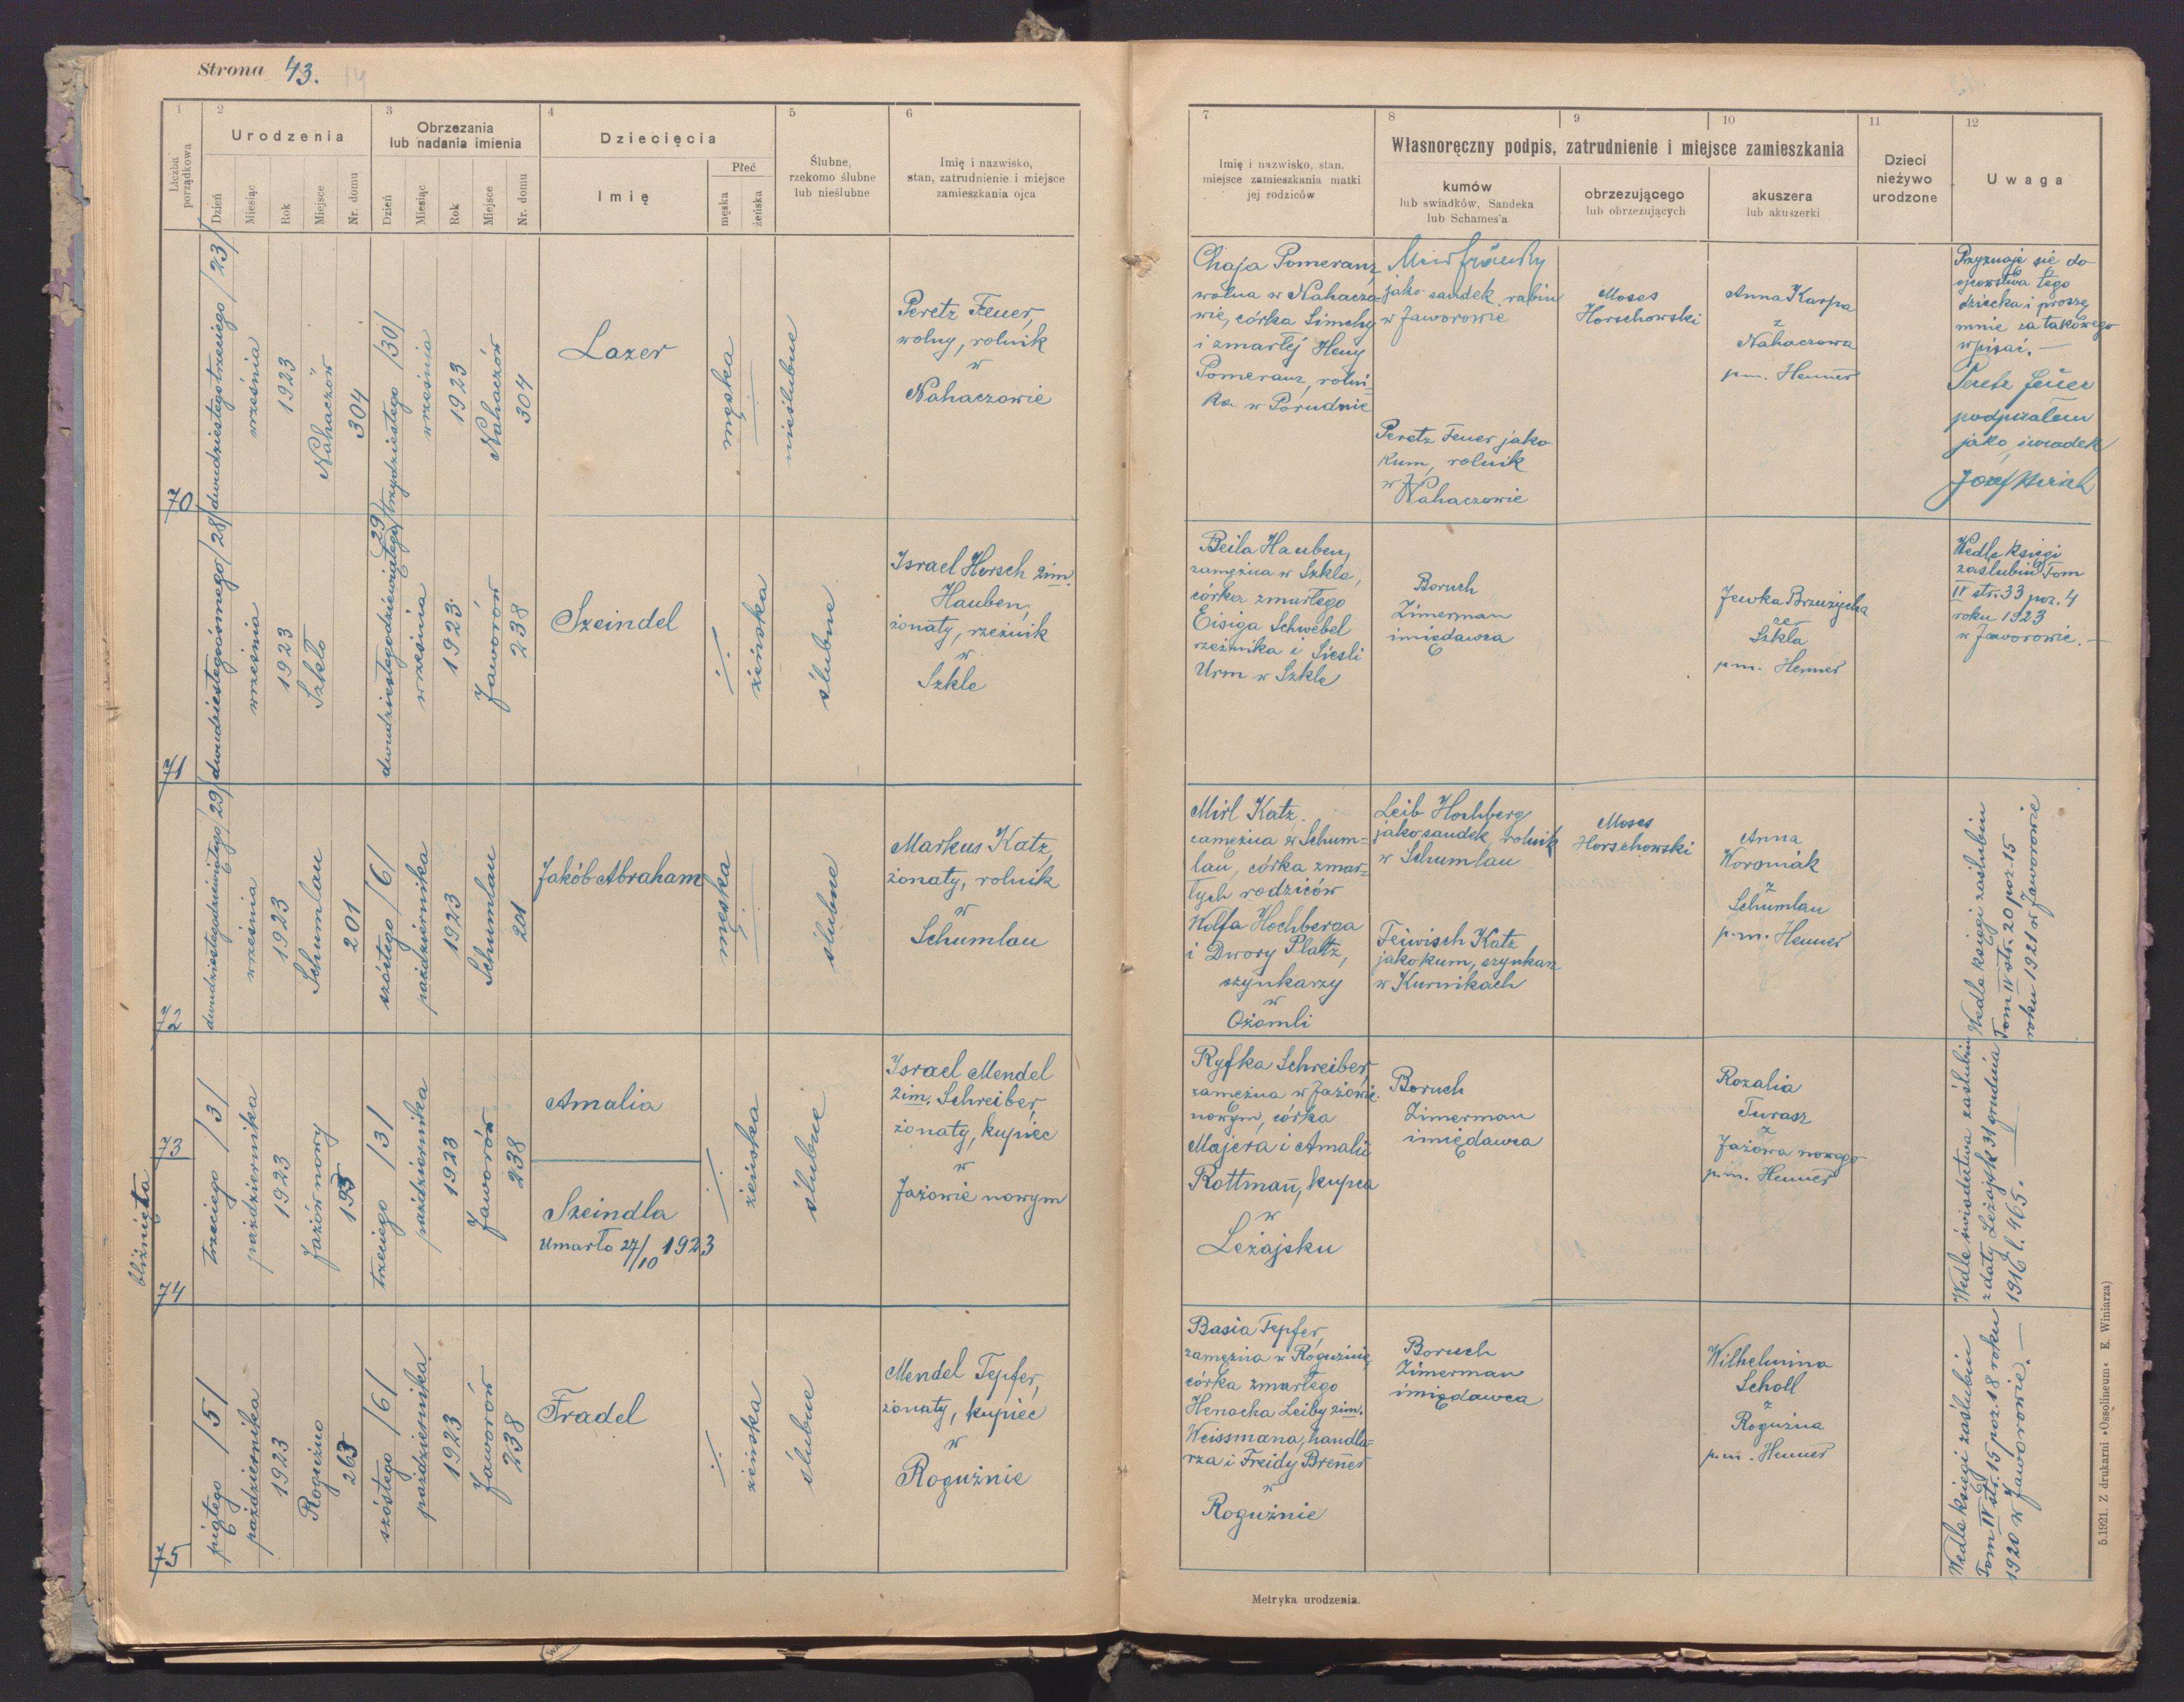 Strona 43.
14
1
2
3
4
5
6
Liczba porządkowa
Urodzenia
Obrzezania
lub nadania imienia
Dziecięcia
Ślubne,
rzekomo ślubne
lub nieślubne
Imię i nazwisko,
stan, zatrudnienie i miejsce
zamieszkania ojca
Dzień
Miesiąc
Rok
Miejsce
Nr. domu
Dzień
Miesiąc
Rok
Miejsce
Nr. domu
Imię
Płeć
męska
żeńska
7
8
9
10
11
12
Imię i nazwisko, stan,
miejsce zamieszkania matki
jej rodziców
Własnoręczny podpis, zatrudnienie i miejsce zamieszkania
kumów
lub swiadków, Sandeka
lub Schames'a
obrzezującego
lub obrzezujących
akuszera
lub akuszerki
Dzieci
nieżywo
urodzone
Uwaga
70
dwudziestegotrzeciego /23/
września
1923
Nahaczów
304
trzydziestego /30/
września
1923
Nahaczów
304
Lazer
męska
nieślubne
Peretz Feuer,
wolny, rolnik
w
Nahaczowie
Chaja Pomeranz,
wolna w Nahaczo-
wie, córka Simchy
i zmarłej Heny
Pomeranz, rolni-
ka w Porudnie
jako sandek rabin
w Jaworowie
Peretz Feuer jako
kum, rolnik
w
Nahaczowie
Moses
Horschowski
Anna Karpa
z
Nahaczowa
p.m. Henner
Przyznaję się do
ojcowstwa tego
dziecka i proszę
mnie za takowego
wpisać. —
Peretz Feuer
podpisałem
jako świadek
71
dwudziestegoósmego /28/
września
1923
Szkło
dwudziestegodziewiątego /29/
września
1923
Jaworów
238
Szeindel
żeńska
ślubne
Israel Hersch 2im.
Hauben,
żonaty, rzeźnik
w
Szkle
Beila Hauben,
zamężna w Szkle,
córka zmarłego
Eisiga Schwebel
rzeźnika i Siesli
Urm w Szkle
Boruch
Zimerman
imiędawca
Jewka Brzuzycha
ze
Szkla
p.m. Henner
Wedle księgi
zaślubin Tom
IV str. 33 poz. 4
roku 1923
w Jaworowie. —
72
dwudziestegodziewiątego /29/
września
1923
Schumlau
201
szóstego /6/
października
1923
Schumlau
201
Jakób Abraham
męska
ślubne
Markus Katz,
żonaty, rolnik
w
Schumlau
Mirl Katz,
zamężna w Schum-
lau, córka zmar-
łych rodziców
Wolfa Hochberga
i Dwory Platz,
szynkarzy
w
Ożomli
Leib Hochberg
jako sandek, rolnik
w Schumlau
Feiwisch Katz
jako kum, szynkarz
w Kurnikach
Moses
Horschowski
Anna
Woroniak
z
Schumlau
p.m. Henner
Wedle księgi zaślubin
Tom IV str. 20 poz. 15
roku 1921 w Jaworowie
bliźnięta
73
74
trzeciego /3/
października
1923
Jażów nowy
195
trzeciego /3/
października
1923
Jaworów
238
Amalia
Szeindla
Umarło 27/10 1923
żeńska
ślubne
Israel Mendel
2im. Schreiber,
żonaty, kupiec
w
Jażowie nowym
Ryfka Schreiber,
zamężna w Jażowie
nowym, córka
Majera i Amalii
Rottmañ, kupca
w
Leżajsku
Boruch
Zimerman
imiędawca
Rozalia
Turasz
z
Jażowa nowego
p.m. Henner
Wedle świadectwa zaślubin
z daty Leżajsk 31 grudnia
1916 l. 465. —
75
piątego /5/
października
1923
Rogóźno
263
szóstego /6/
października
1923
Jaworów
238
Fradel
żeńska
ślubne
Mendel Tepfer,
żonaty, kupiec
w
Roguźnie
Basia Tepfer,
zamężna w Roguźnie,
córka zmarłego
Henocha Leiby 2im.
Weissmana, handla-
rza i Freidy Breñer
w
Roguźnie
Boruch
Zimerman
imiędawca
Wilhelmina
Scholl
z
Roguźna
p.m. Henner
Wedle księgi zaślubin
Tom IV str. 15 poz. 18 roku
1920 w Jaworowie. —
Metryka urodzenia.
5.1921. Z drukarni »Ossolineum« E. Winiarza)